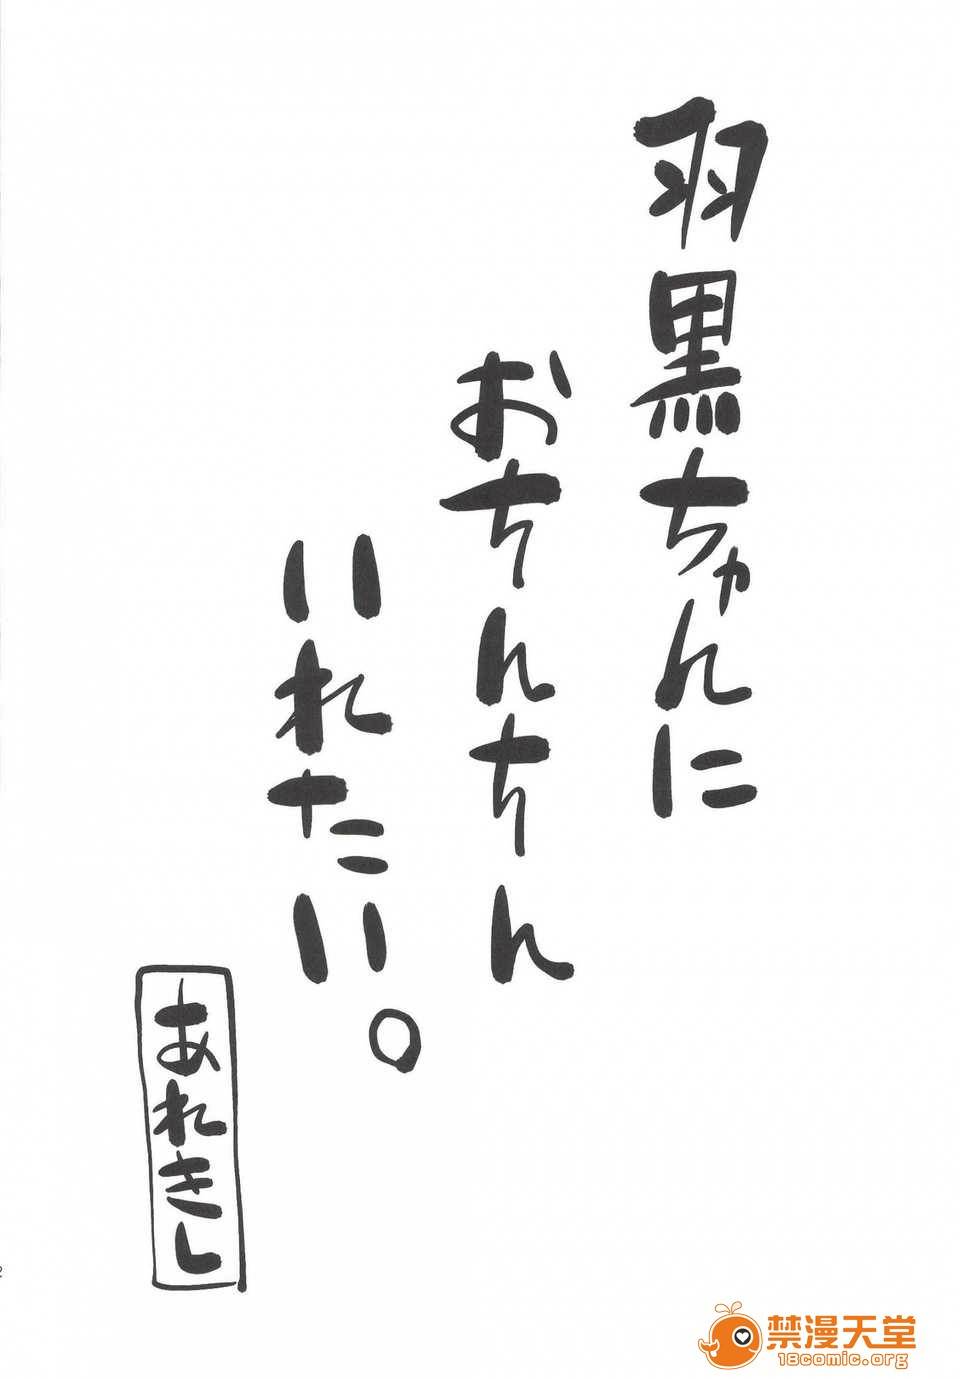 羽黒ちゃんに
おちんちん
いれたい。
あれきし
禁漫天堂
18comic.org
2